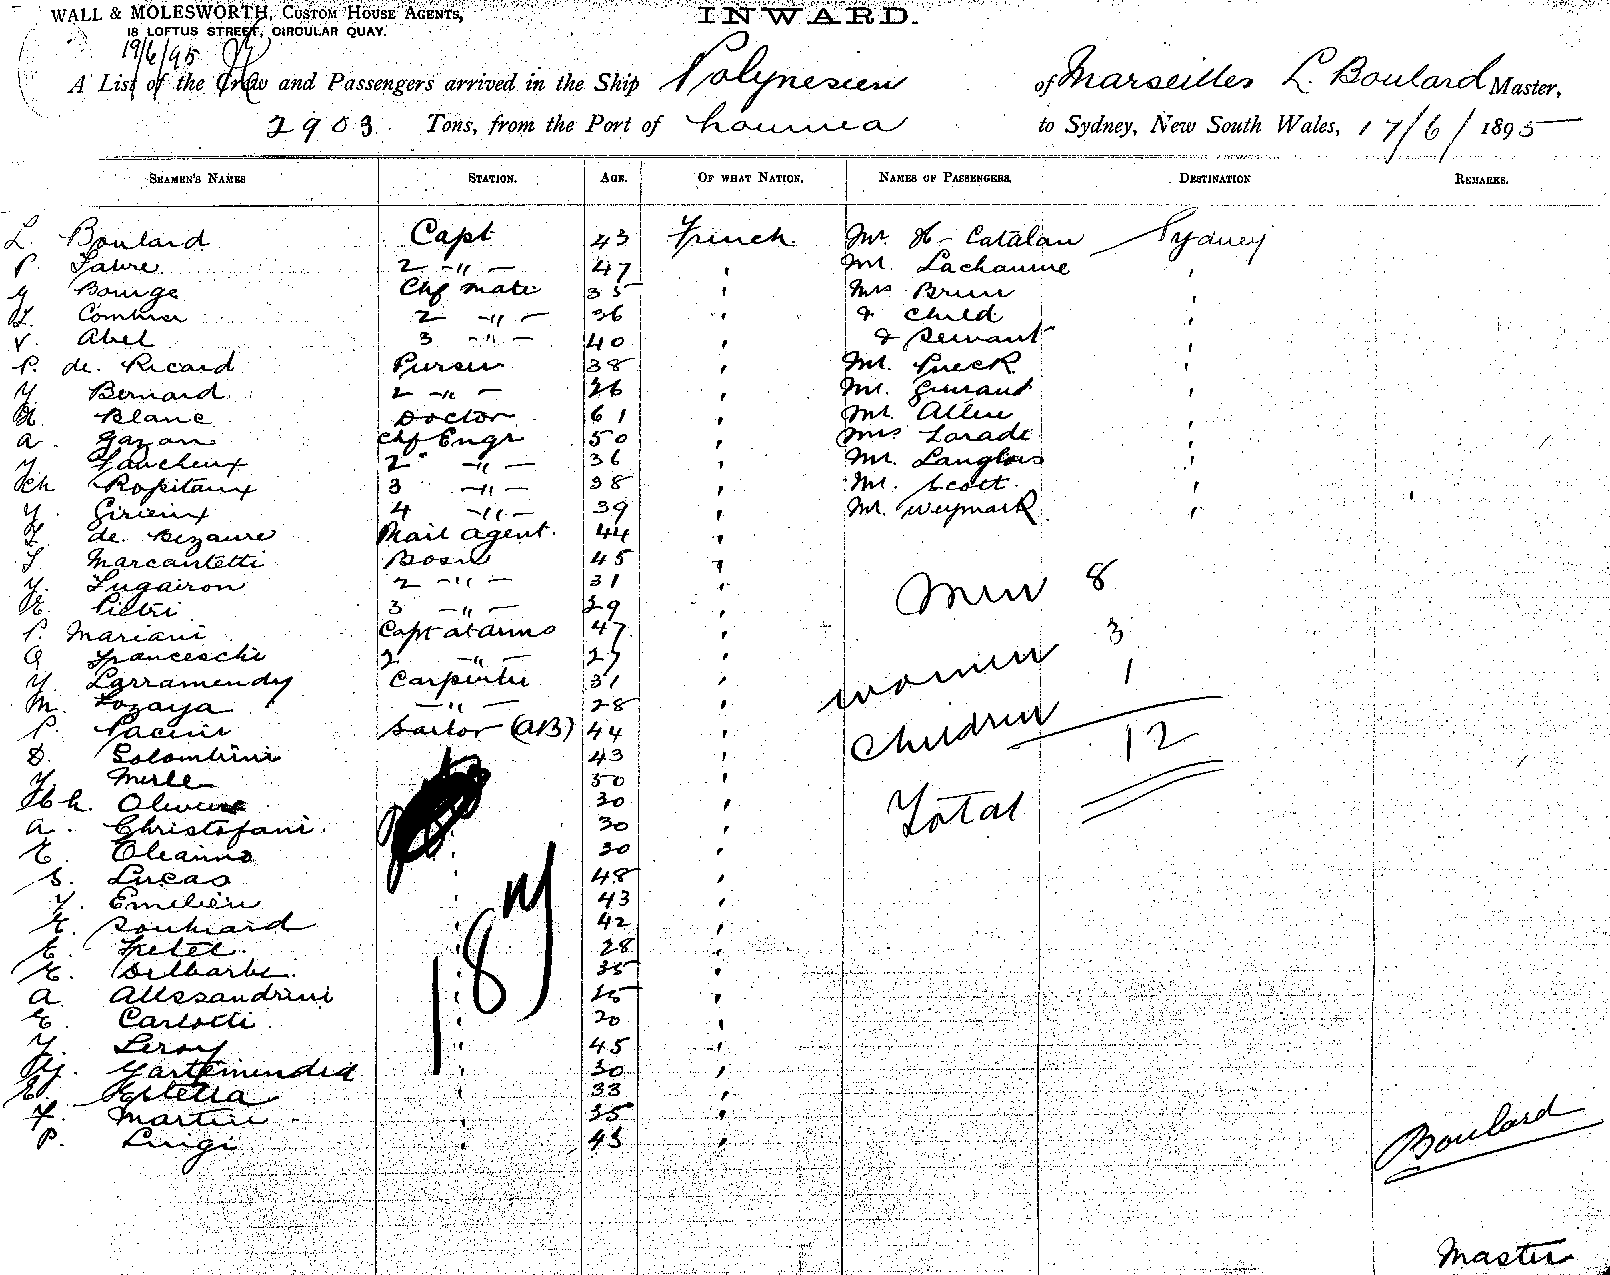 WALL & MOLESWORTH, CUSTOM HOUSE AGENTS,
18 LOFTUS STREET, CIRCULAR QUAY.
INWARD.
19/6/95
A List of the Crew and Passengers arrived in the Ship Polynesien of Marseilles L. Boulard Master,
2903 Tons, from the Port of Noumea to Sydney, New South Wales, 17/6/1895
SEAMEN'S NAMES STATION. AGE. OF WHAT NATION. NAMES OF PASSENGERS. DESTINATION REMARKS.
L. Boulard Capt 43 French Mr. H. Catalan Sydney
P. Fabre 2 -"- 47 ' Mr. Lachaume '
Bourge Chf mate 35 ' Mrs Brun '
Combier 2 -"- 36 ' & Child '
V. Abel 3 -"- 40 ' & Servant '
P. de. Ricard Purser 38 ' Mr. Pueck '
Bernard 2 -"- 26 ' Mr. Guiraud '
Blanc Doctor 61 ' Mr. Allen '
a. Gazan Chf Engr 50 ' Mrs Larade '
Faucheux 2 -"- 36 ' Mr. Langlois '
Ch Ropitaux 3 -"- 38 ' Mr. Scott '
Girieux 4 -"- 39 ' Mr. Weymark '
de. Bizaure Mail Agent. 44 '
Marcantetti Bosn 45 '
Lugairon 2 -"- 31 '
Pietri 3 -"- 29 '
P. Mariani Capt at arms 47 '
Franceschi 2 -"- 27 '
Larramendy Carpenter 31 '
M. Lozaya -"- 28 '
P. Pacini Sailor (AB) 44 '
D. Colombini 43 '
Merle 50 '
Ch. Olivieri 30 '
a. Christofani. 30 '
E. Oleanno 30 '
S. Lucas 48 '
Emilien 43 '
E. Souhiard 42 '
E. Fretel 28 '
E. Delbarbe. 35 '
a. Alessandrini 25 '
E. Carlotti 20 '
Leroy 45 '
Gartemendia 30 '
33 '
F. Martin 35 '
P. Luigi 43 '
Men 8
Women 3
Children 1
Total 12
18 M
Boulard
Master